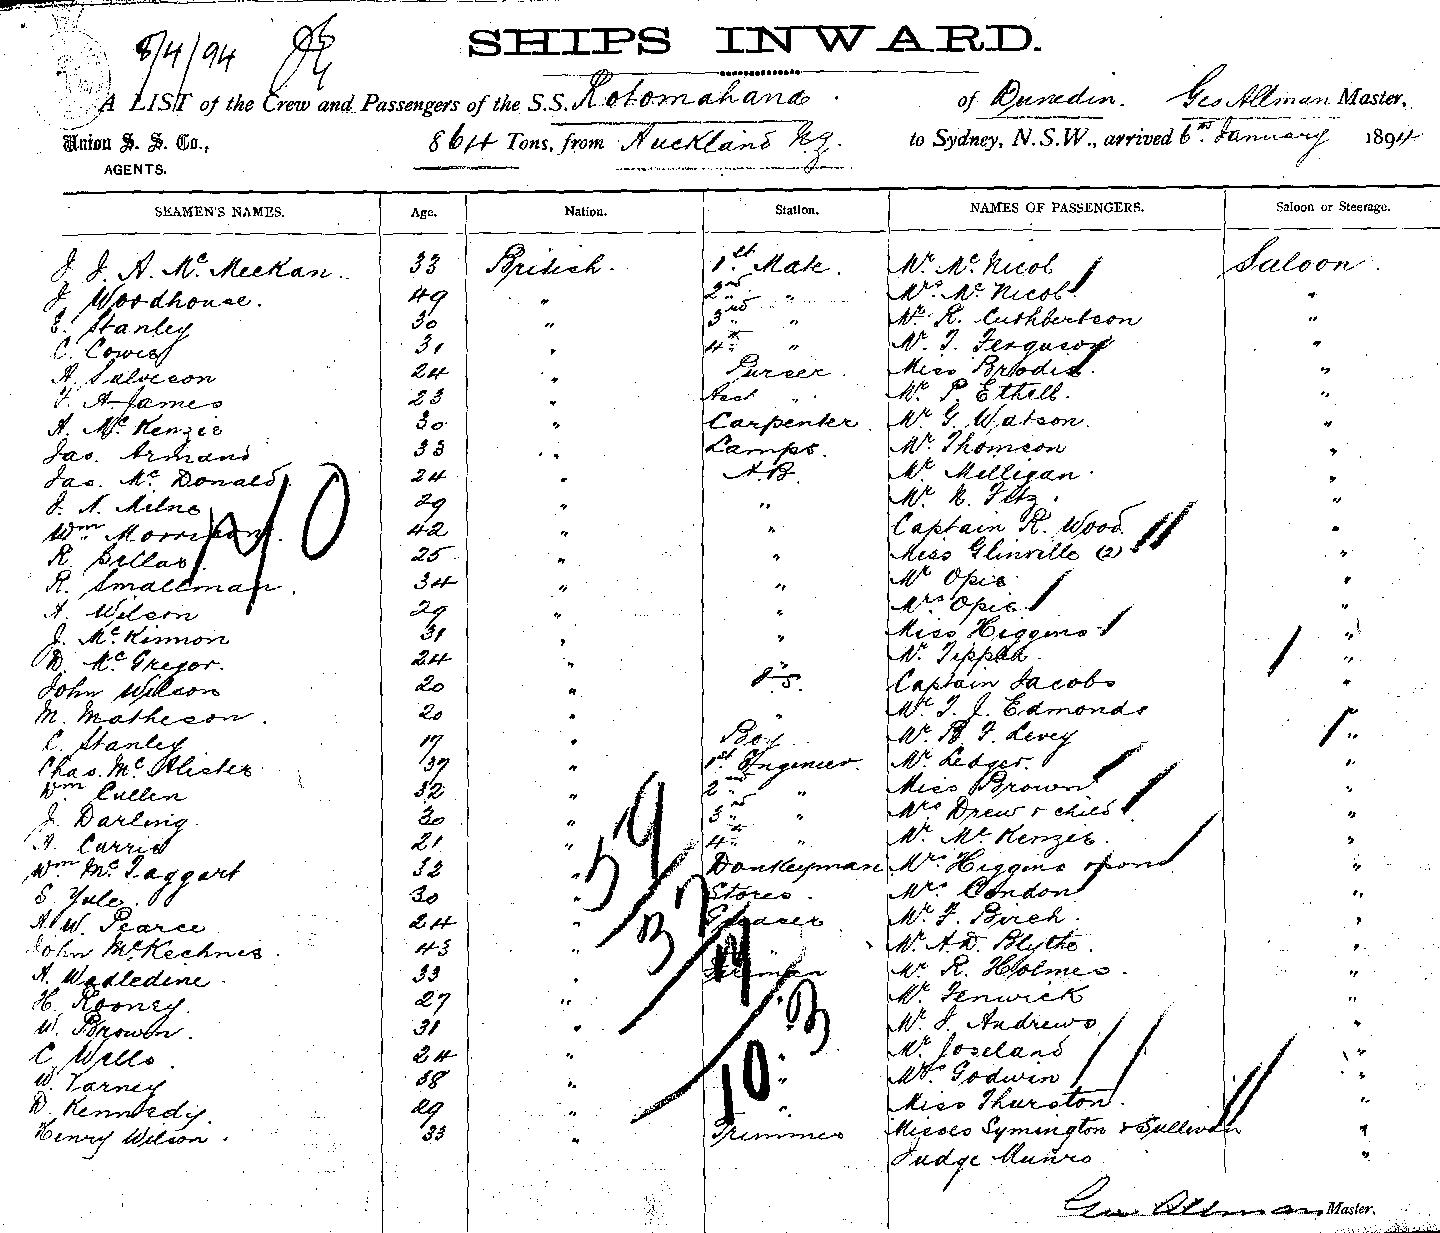 8/4/94
SHIPS INWARD.
A LIST of the Crew and Passengers of the S.S. Rotomahana of Dunedin. Geo Allman Master,
Union S. S. Co., 864 Tons, from Auckland N.Z. to Sydney, N.S.W., arrived 6th January 1894
AGENTS.
SEAMEN'S NAMES. Age. Nation. Station. NAMES OF PASSENGERS. Saloon or Steerage.
J. J. A. Mc Meckan. 33 British. 1st Mate. Mr Mc Nicol Saloon.
J. Woodhouse. 49 " 2nd " Mrs Mc Nicol. "
E. Stanley 30 " 3rd " Mr R. Cuthbertson "
C. Cowie 31 " 4th " Mr T. Ferguson "
A. Salveson 24 " Purser. Miss Brodie. "
F. A. James 23 " Asst " Mr P. Ethell. "
A. Mc Kenzie 30 " Carpenter. Mr G. Watson. "
Jas. Armand 33 " Lamps. Mr Thomson "
Jas. Mc Donald. 24 " A.B. Mr Milligan. "
J. N. Milne 29 " " Mr N. "
Wm Morrison. 42 " " Captain R. Wood "
R. 25 " Miss Glinville (2) "
R. Smallman. 34 " " Mr Opie "
A. Wilson 29 " " Mrs Opie. "
J. Mc Kinnon 31 " " Miss Higgins "
D. Mc Gregor. 24 " " Mr "
John Wilson 20 " O.S. Captain Jacobs "
M. Matheson. 20 " " Mr T. J. Edmonds
C. Stanley 17 " Boy Mr B. F. Levey "
Chas. Mc Alister 37 " 1st Engineer. Mr Ledger. "
Wm Cullen 32 " 2nd " Miss Brown "
J. Darling. 30 " 3rd " Mrs Drew & child "
J. Currie 21 " 4th " Mr Mc Kenzie. "
Wm Mc Taggart 32 " Donkeyman Mrs Higgins & son "
S. Yule. 30 " Stores. Mrs Condon "
A. W. Pearce 24 " Greaser Mr F. Birch. "
John McKechnie. 43 " " Mr A.D. Blythe. "
A. Wadledine. 33 " Firemen Mr R. Holmes. "
H. Rooney. 27 " Mr Fenwick "
W. Brown. 31 " " Mr J. Andrews "
C. Wells. 24 " " Mr Joseland "
W. Varney 38 " " Mrs Godwin "
D. Kennedy. 29 " " Miss Thurston. "
Henry Wilson. 33 " Trimmer Misses Symington & Sullivan "
Judge Munro "
Geo Allman Master.